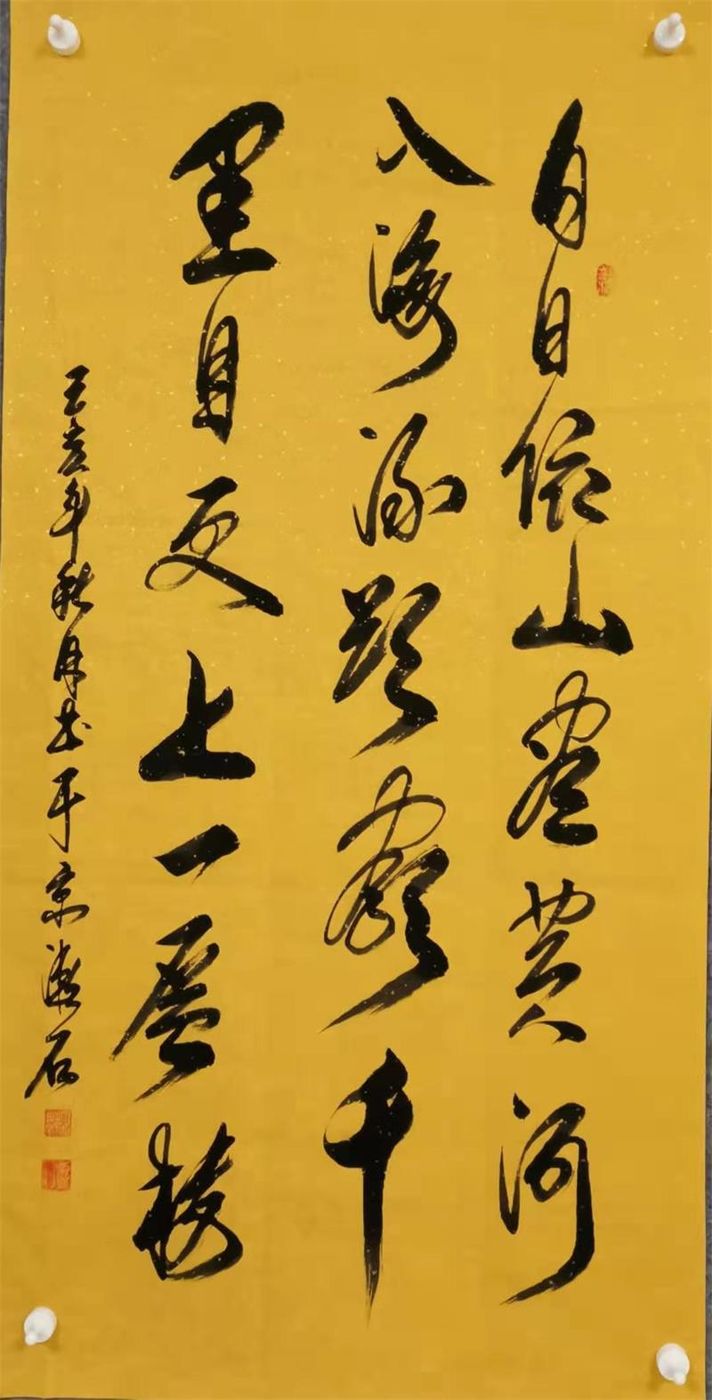 白日依山盡黄河
入海流欲窮千
里目更上一層樓
亥年秋月书于京石